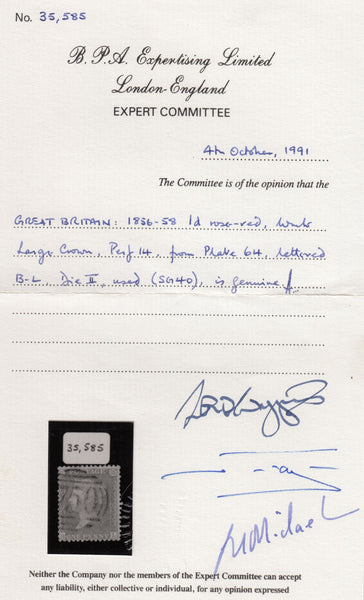 No. 35,585
B.P.A. Expertising Limited
London-England
EXPERT COMMITTEE
4th October, 1991
The Committee is of the opinion that the
GREAT BRITAIN: 1856-58 1d rose-red, wmk
Large Crown, Perf 14, from Plate 64, lettered
B-L, Die II, used (SG40), is genuine.
35,585
Neither the Company nor the members of the Expert Committee can accept
any liability, either collective or individual, for any opinion expressed